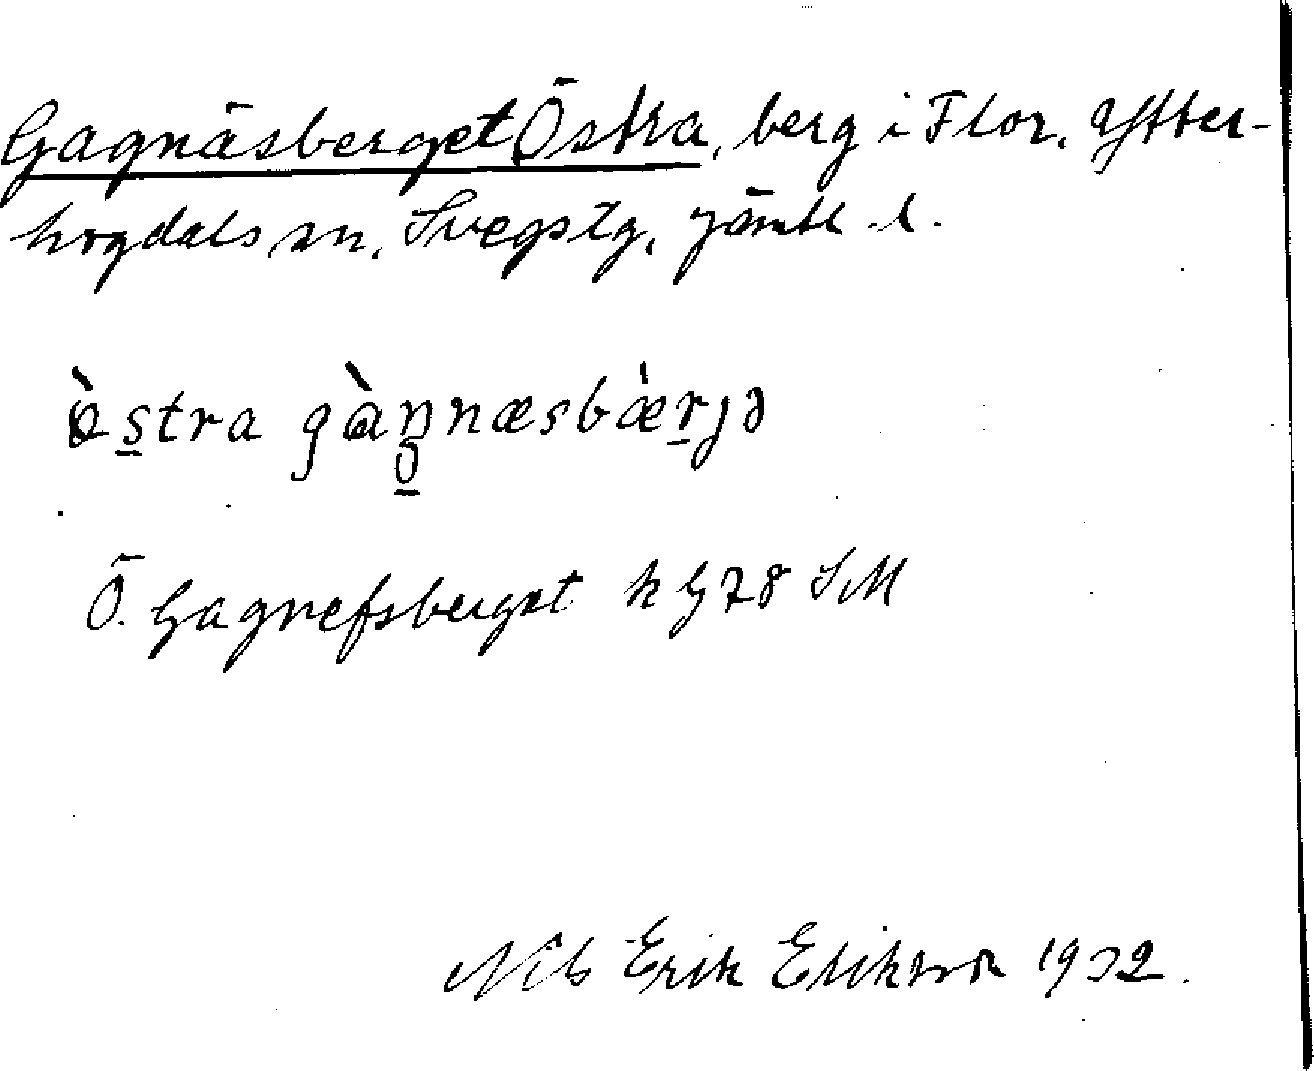 Gagnäsberget Östra, berg i Flor, Ytter-
hogdals sn, Svegs tg, Jämtl. l.
ø̀stra gàŋnæsbæ̀rjə
Ö. Gagnefsberget k G78 SM
Nils Erik Erikson 1932.